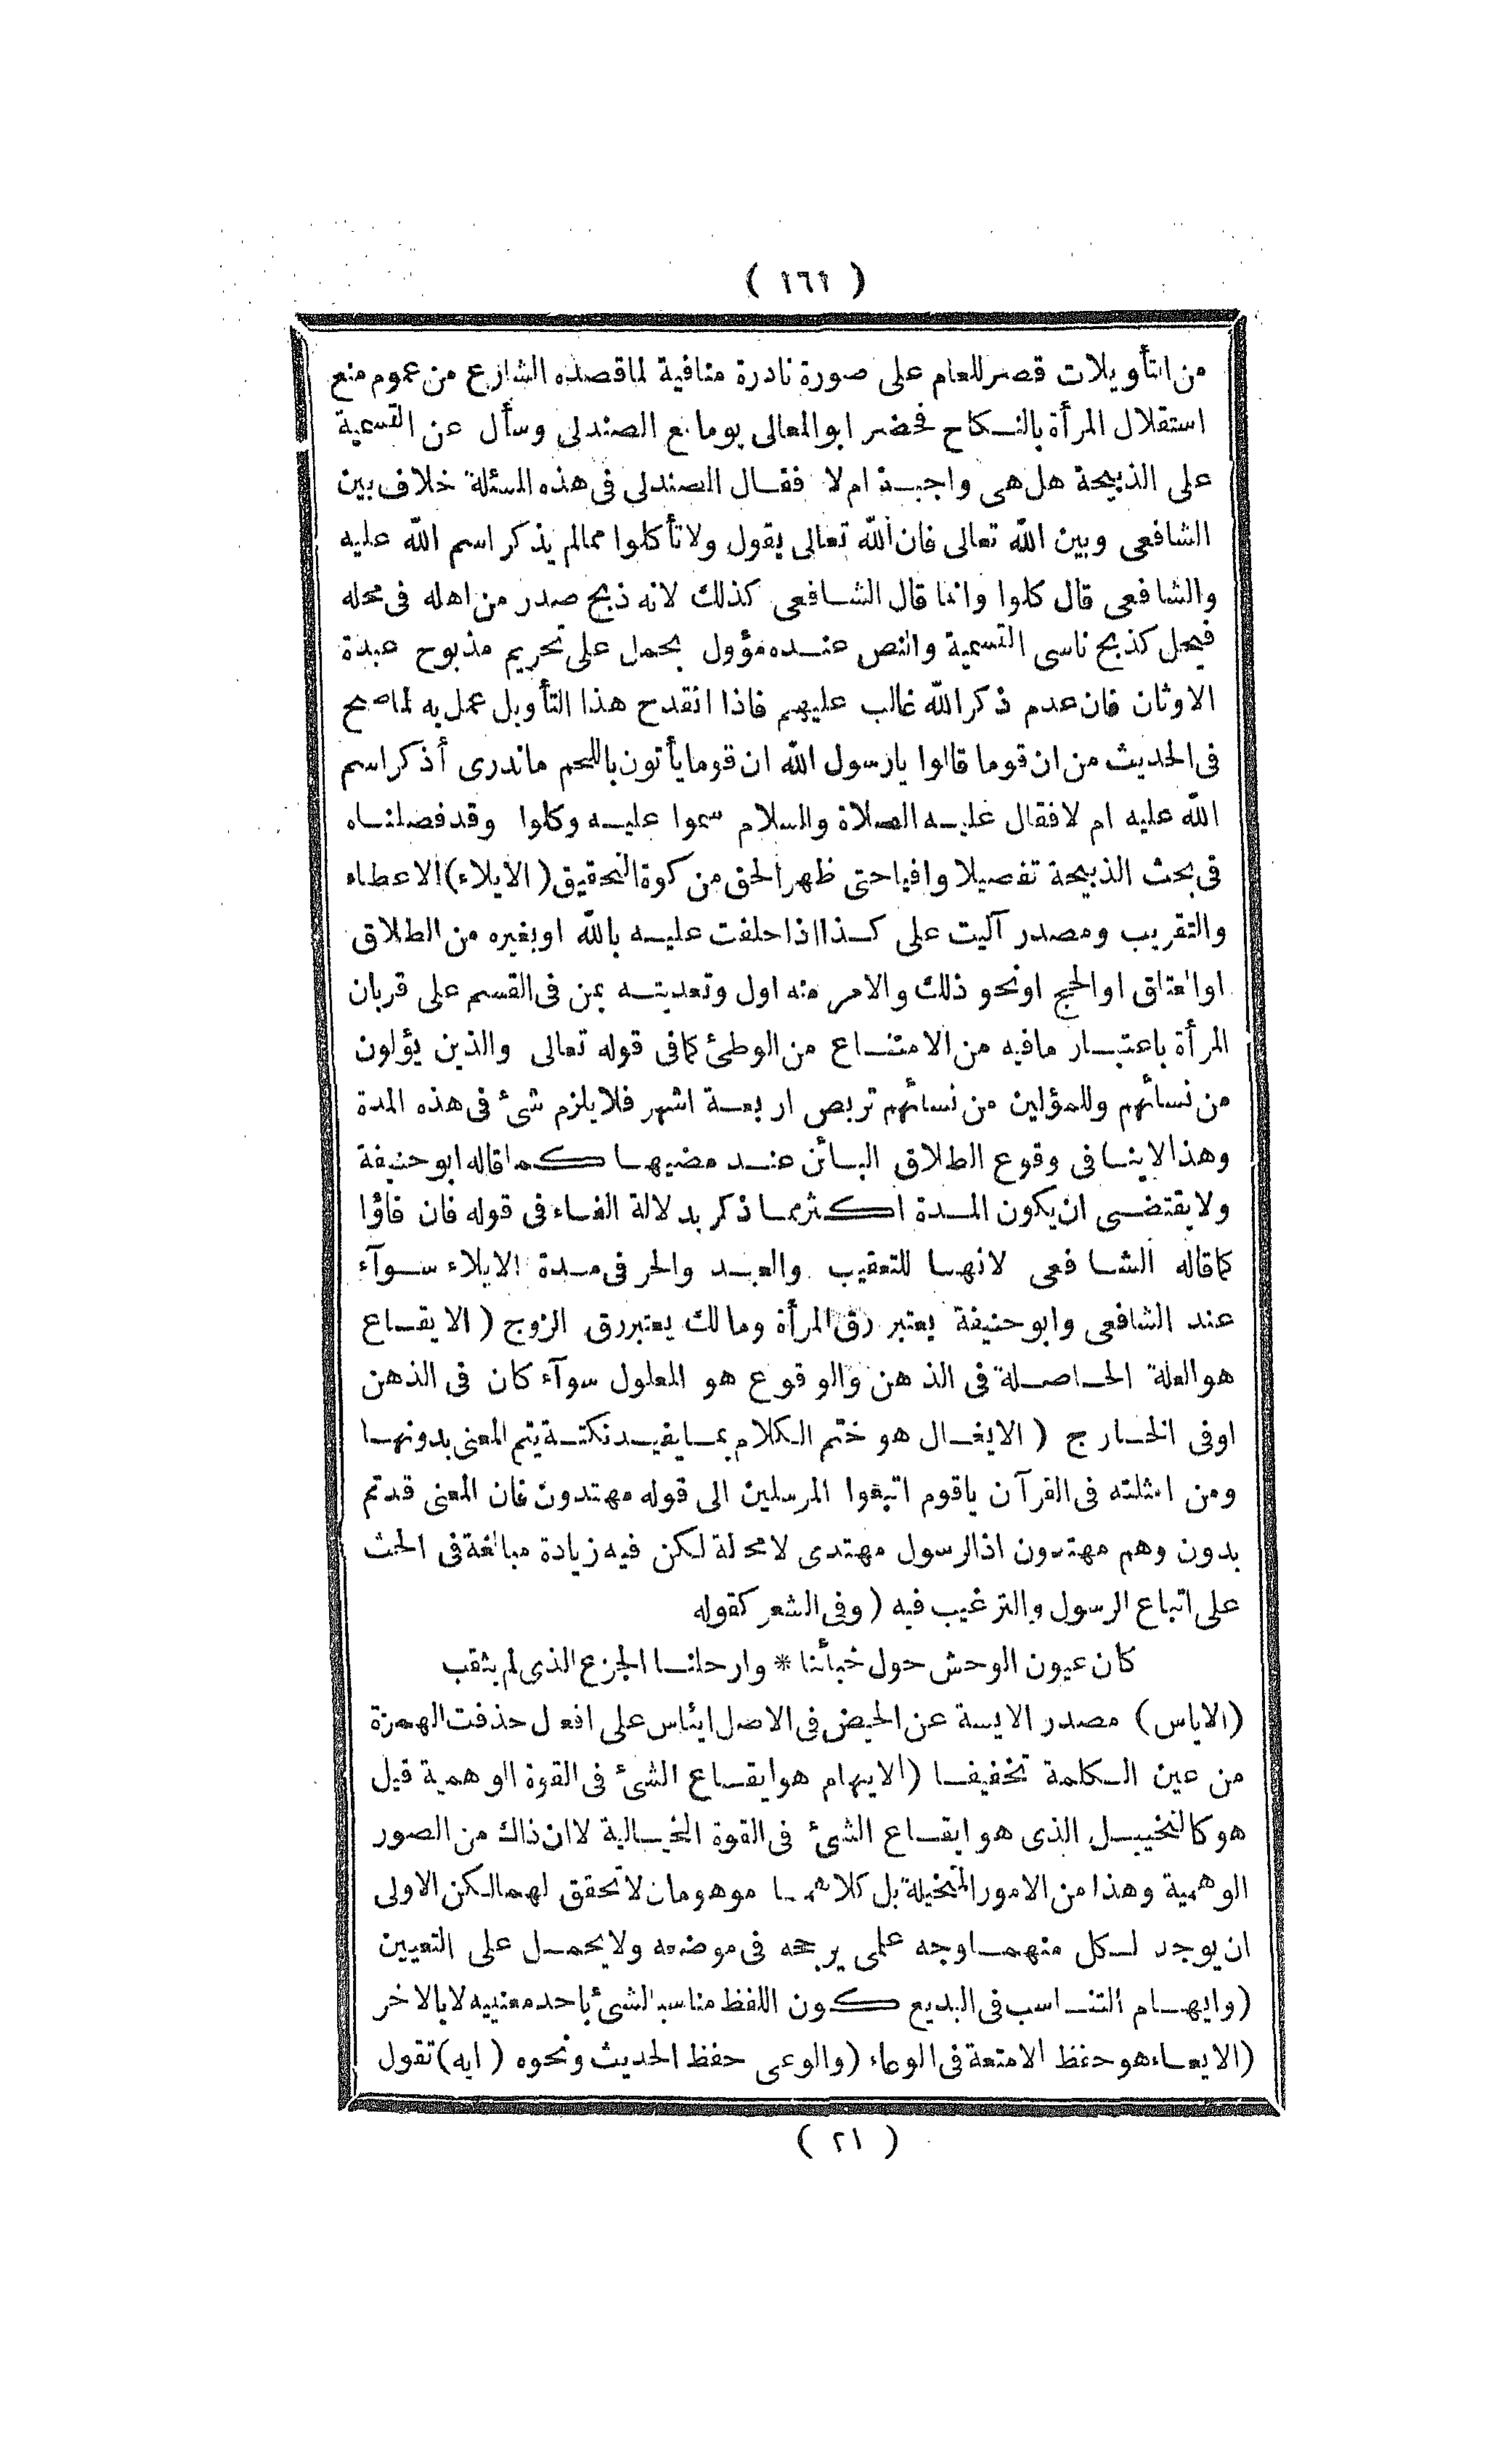 ( ١٦١ )
من التأويلات قصر للعام على صورة نادرة منافية لما قصده الشارع من عموم منع
استقلال المرأة بالنكاح فحضر ابو المعالى يوما مع الصندلى وسأل عن التسمية
على الذبيحة هل هى واجبة ام لا فقال الصندلى فى هذه المسئلة خلاف بين
الشافعى وبين الله تعالى فان الله تعالى يقول ولا تأكلوا مما لم يذكر اسم الله عليه
والشافعى قال كلوا وانما قال الشافعى كذلك لانه ذبح صدر من اهله فى محله
فيحل كذبح ناسى التسمية والنص عنده مؤول بحمل على تحريم مذبوح عبدة
الاوثان فان عدم ذكر الله غالب عليهم فاذا انقدح هذا التأويل عمل به لما صح
فى الحديث من ان قوما قالوا يا رسول الله ان قوما يأتون باللحم ما ندرى أذكر اسم
الله عليه ام لا فقال عليه الصلاة والسلام سموا عليه وكلوا وقد فصلناه
فى بحث الذبيحة تفصيلا وافيا حتى ظهر الحق من كوة التحقيق ( الايلاء ) الاعطاء
والتقريب ومصدر آليت على كذا اذا حلفت عليه بالله او بغيره من الطلاق
او العتاق او الحج او نحو ذلك والامر منه اول وتعديته بمن فى القسم على قربان
المرأة باعتبار ما فيه من الامتناع من الوطئ كما فى قوله تعالى والذين يؤلون
من نسائهم وللمؤلين من نسائهم تربص اربعة اشهر فلا يلزم شئ فى هذه المدة
وهذا لا ينافى وقوع الطلاق البائن عند مضيها كما قاله ابو حنيفة
ولا يقتضى ان يكون المدة اكثر مما ذكر بدلالة الفاء فى قوله فان فاؤا
كما قاله الشافعى لانها للتعقيب والعبد والحر فى مدة الايلاء سوآء
عند الشافعى وابو حنيفة يعتبر رق المرأة ومالك يعتبر رق الزوج ( الايقاع
هو العلة الحاصلة فى الذهن والوقوع هو المعلول سوآء كان فى الذهن
او فى الخارج ( الايغال هو ختم الكلام بما يفيد نكتة يتم المعنى بدونها
ومن امثلته فى القرآن ياقوم اتبعوا المرسلين الى قوله مهتدون فان المعنى قد تم
بدون وهم مهتدون اذ الرسول مهتدى لا محلة لكن فيه زيادة مبالغة فى الحث
على اتباع الرسول والترغيب فيه ( وفى الشعر كقوله
كان عيون الوحش حول خبائنا * وارحلنا الجزع الذى لم يثقب
( الاياس ) مصدر الايسة عن الحيض فى الاصل ايئاس على افعل حذفت الهمزة
من عين الكلمة تخفيفا ( الايهام هو ايقاع الشئ فى القوة الوهمية قيل
هو كالتخييل الذى هو ايقاع الشئ فى القوة الخيالية لا ان ذاك من الصور
الوهمية وهذا من الامور المتخيلة بل كلاهما موهومان لا تحقق لهما لكن الاولى
ان يوجد لكل منهما وجه علمى يرجحه فى موضعه ولا يحمل على التعيين
( وايهام التناسب فى البديع كون اللفظ مناسبا لشئ باحد معنييه لا بالاخر
( الايعاء هو حفظ الامتعة فى الوعاء ( والوعى حفظ الحديث ونحوه ( ايه ) تقول
( ٢١ )